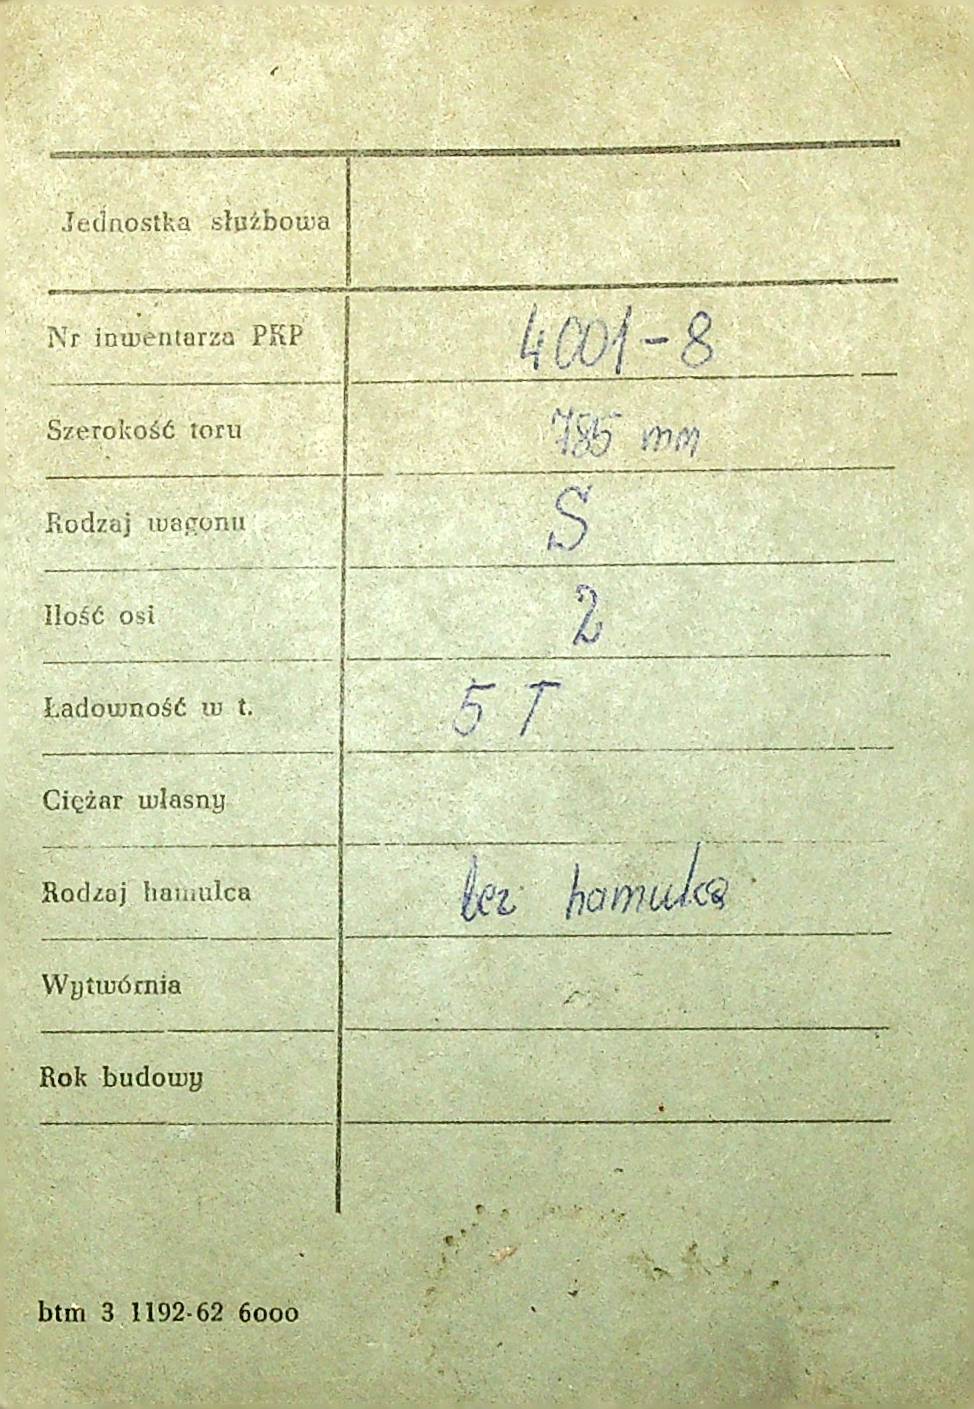 Jednostka służbowa
Nr inwentarza PKP 4001-8
Szerokość toru 785 mm
Rodzaj wagonu S
Ilość osi 2
Ładowność w t. 5 T
Ciężar własny
Rodzaj hamulca bez hamulca
Wytwórnia
Rok budowy
btm 3 1192-62 6000